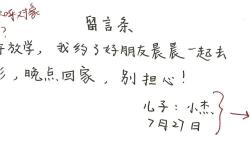 留言条
呼对象
?
放学，我约了好朋友晨晨一起去
，晚点回家，别担心！
儿子：小杰
7月27日